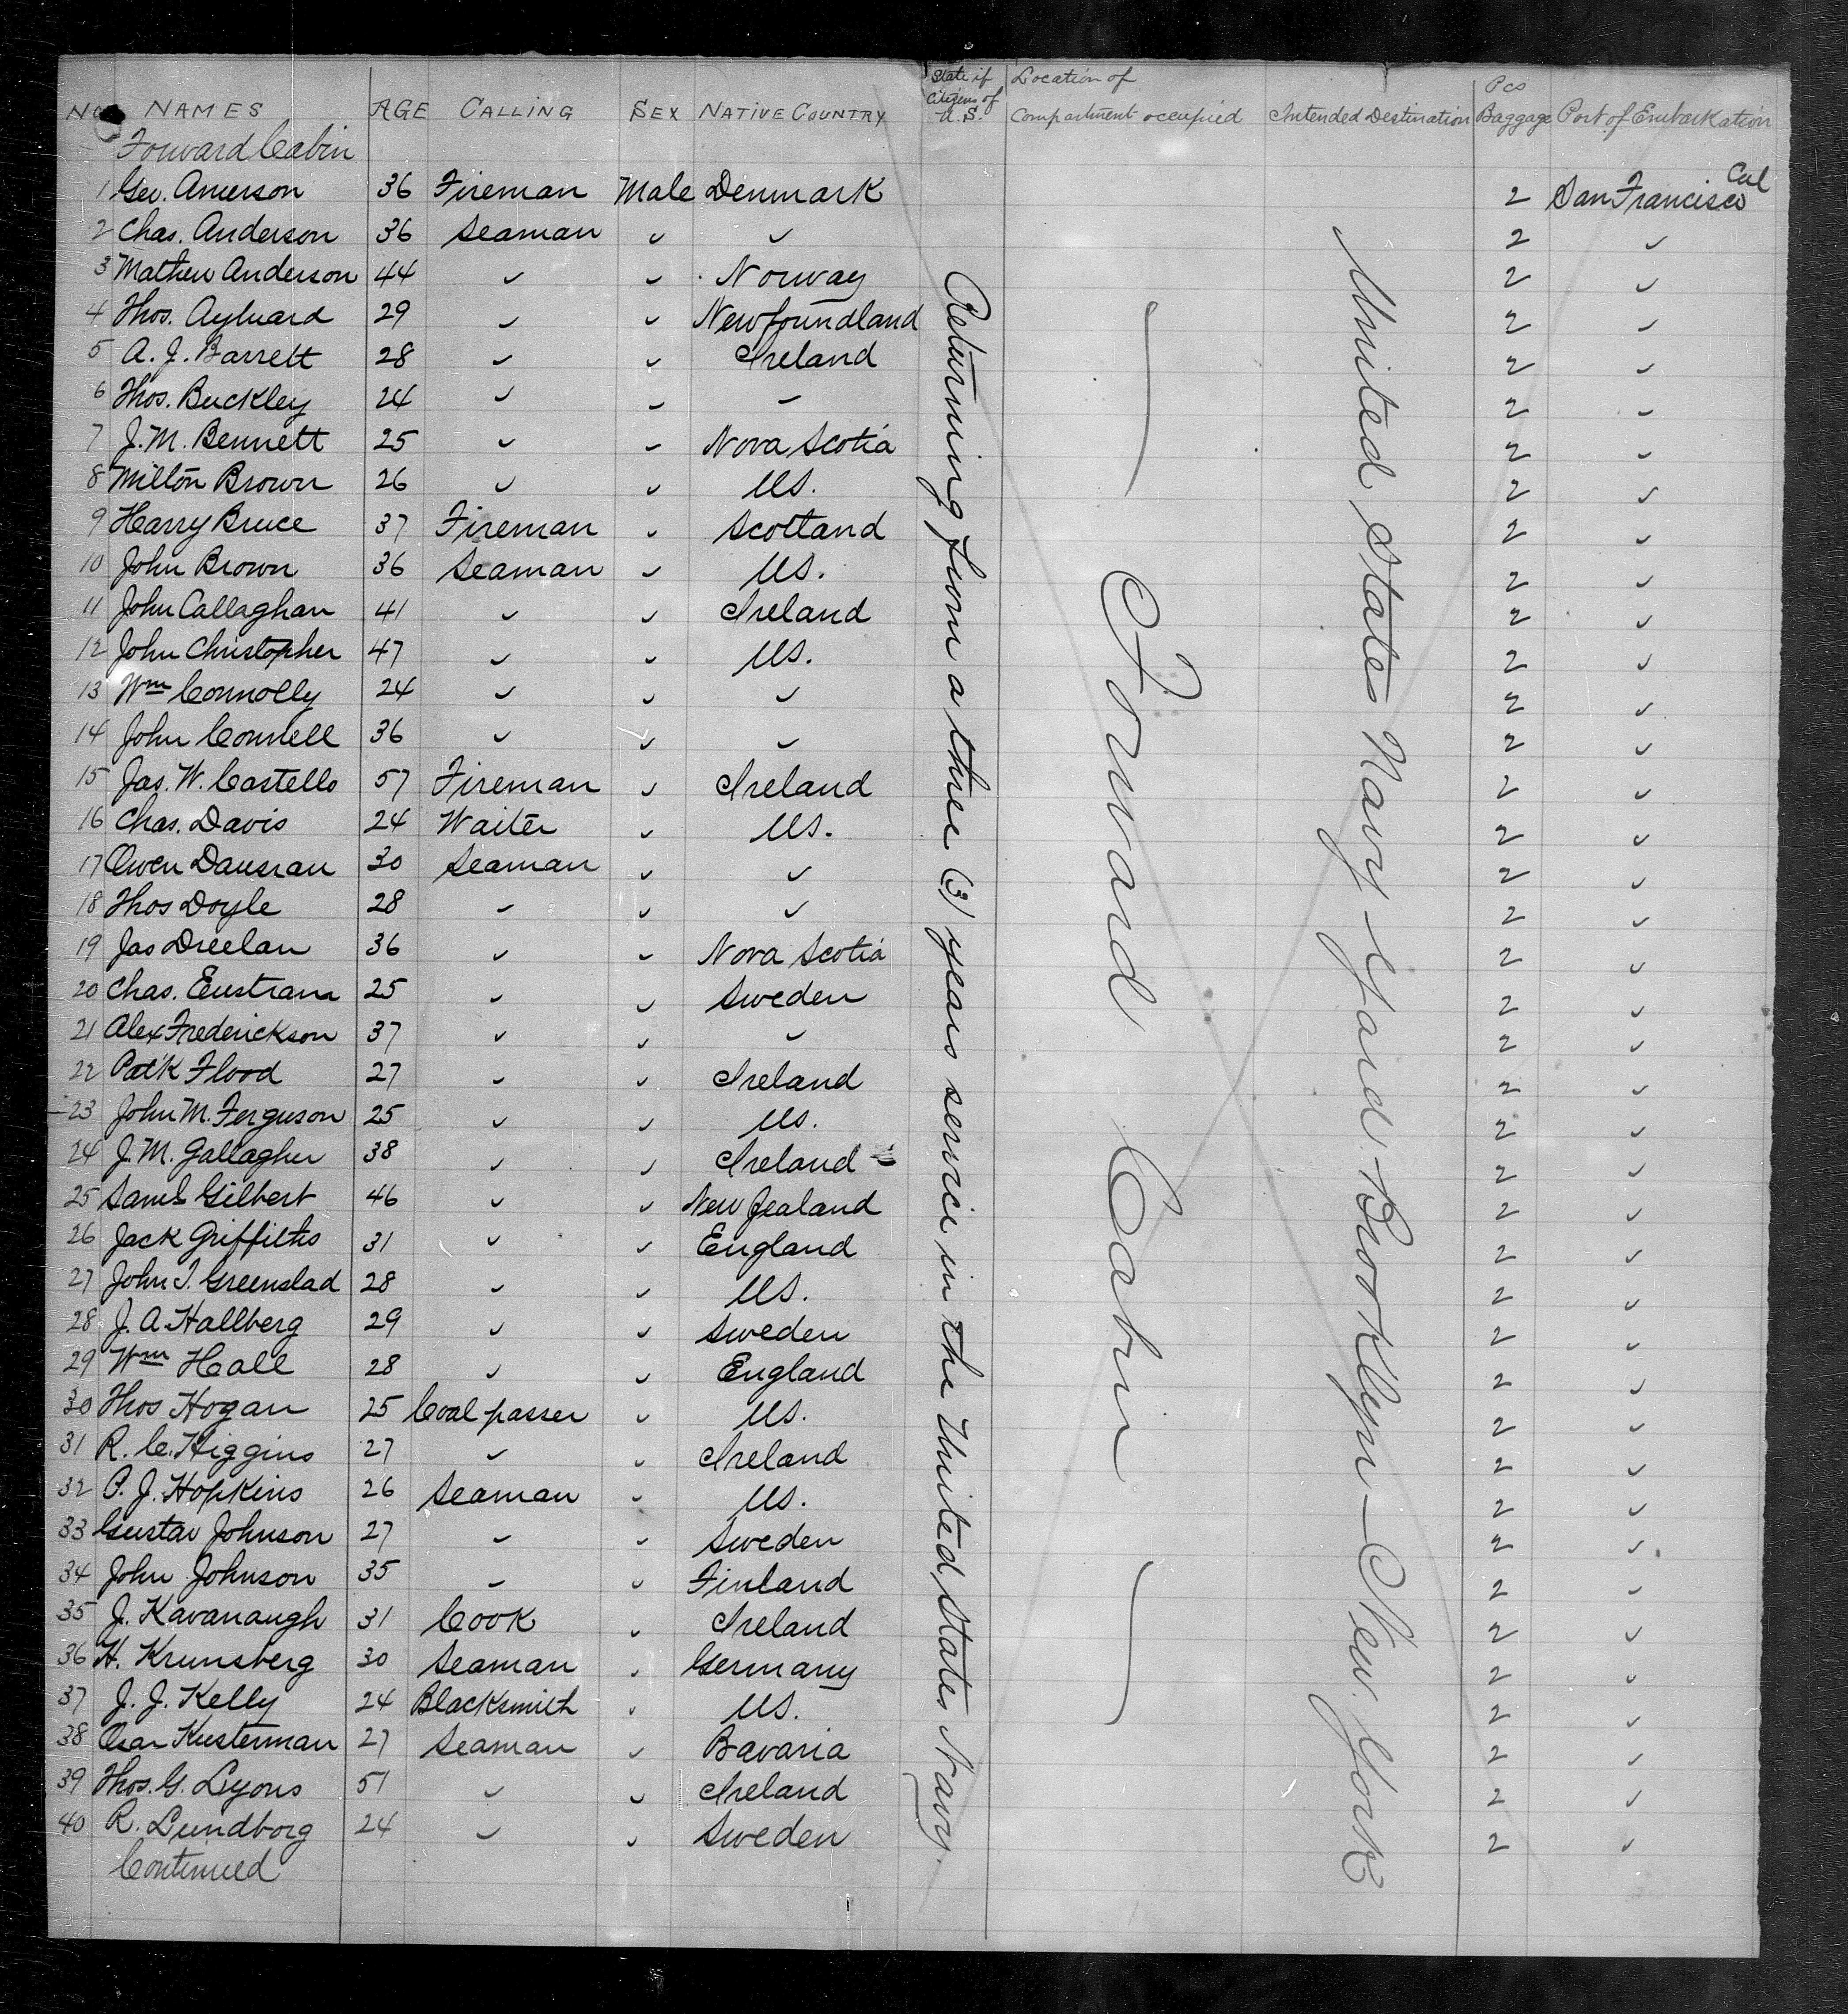 No NAMES AGE CALLING SEX NATIVE COUNTRY State if Citizens of U.S. Location of Compartment occupied Intended Destination Pcs Baggage Port of Embarkation
Forward Cabin
1 Geo. Amerson 36 Fireman Male Denmark 2 San Francisco Cal
2 Chas. Anderson 36 Seaman ✓ ✓ 2 ✓
3 Mathew Anderson 44 ✓ ✓ Norway 2 ✓
4 Thos. Ayluard 29 ✓ ✓ Newfoundland 2 ✓
5 A. J. Barrett 28 ✓ ✓ Ireland 2 ✓
6 Thos. Buckley 24 ✓ ✓ ✓ 2 ✓
7 J. M. Bennett 25 ✓ ✓ Nova Scotia 2 ✓
8 Milton Brown 26 ✓ ✓ US. 2 ✓
9 Harry Bruce 37 Fireman ✓ Scotland 2 ✓
10 John Brown 36 Seaman ✓ US. 2 ✓
11 John Callaghan 41 ✓ ✓ Ireland 2 ✓
12 John Christopher 47 ✓ ✓ US. 2 ✓
13 Wm Connolly 24 ✓ ✓ ✓ 2 ✓
14 John 36 ✓ ✓ ✓ 2 ✓
15 Jas. W. Costello 57 Fireman ✓ Ireland 2 ✓
16 Chas. Davis 24 Waiter ✓ US. 2 ✓
17 Owen 30 Seaman ✓ ✓ 2 ✓
18 Thos Doyle 28 ✓ ✓ ✓ 2 ✓
19 Jas Dreelan 36 ✓ ✓ Nova Scotia 2 ✓
20 Chas. 25 ✓ ✓ Sweden 2 ✓
21 Alex Frederickson 37 ✓ ✓ ✓ 2 ✓
22 Patk Flood 27 ✓ ✓ Ireland 2 ✓
23 John M. Ferguson 25 ✓ ✓ US. 2 ✓
24 J. M. Gallagher 38 ✓ ✓ Ireland 2 ✓
25 Saml Gilbert 46 ✓ ✓ New Zealand 2 ✓
26 Jack Griffiths 31 ✓ ✓ England 2 ✓
27 John J. Greenslad 28 ✓ ✓ US. 2 ✓
28 J. A. Hallberg 29 ✓ ✓ Sweden 2 ✓
29 Wm Hall 28 ✓ ✓ England 2 ✓
30 Thos Hogan 25 Coal passer ✓ US. 2 ✓
31 R. C. Higgins 27 ✓ ✓ Ireland 2 ✓
32 P. J. Hopkins 26 Seaman ✓ US. 2 ✓
33 Gustav Johnson 27 ✓ ✓ Sweden 2 ✓
34 John Johnson 35 ✓ ✓ Finland 2 ✓
35 J. Kavanaugh 31 Cook ✓ Ireland 2 ✓
36 H. Krunsberg 30 Seaman ✓ Germany 2 ✓
37 J. J. Kelly 24 Blacksmith ✓ US. 2 ✓
38 Oscar Kusterman 27 Seaman ✓ Bavaria 2 ✓
39 Thos. G. Lyons 51 ✓ ✓ Ireland 2 ✓
40 R. Lundborg 24 ✓ ✓ Sweden 2 ✓
Continued
Returning from a three (3) years service in the United States Navy.
Forward Cabin
United States Navy Yard - Brooklyn - New York